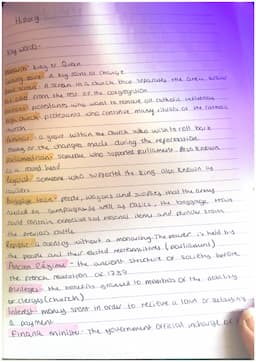 History
Key words-
Monarch: King or Queen
Turning point: A big
Rood screen: A screen in a church that separates the area
the rest of the congregation
protestants who want to remove all catholic influence
High church: protestants who continue many rituals of the catholic
church
Puritans: a group within the Church who wish to roll back
many of the changes made during the reformation.
Parliamentarian: someone who supported Parliament. Also known
as a round head
Royalist: someone who supported the King, also known as
cavaliers
Baggage train: people, wagons and supplies, that the army
needed on campaign as well as basics, the baggage train
could contain expensive and personal items and plunder from
the previous battle
Republic: a country without a monarchy. The power is held by
the people and their elected representatives (parliament)
Ancien Régime: the ancient structure of society before
the French revolution of 1789
Privileges: the benefits granted to members of the nobility
or clergy (church)
Interest: money spent in order to receive a loan or delaying
a payment.
Finance minister: The government official in charge of